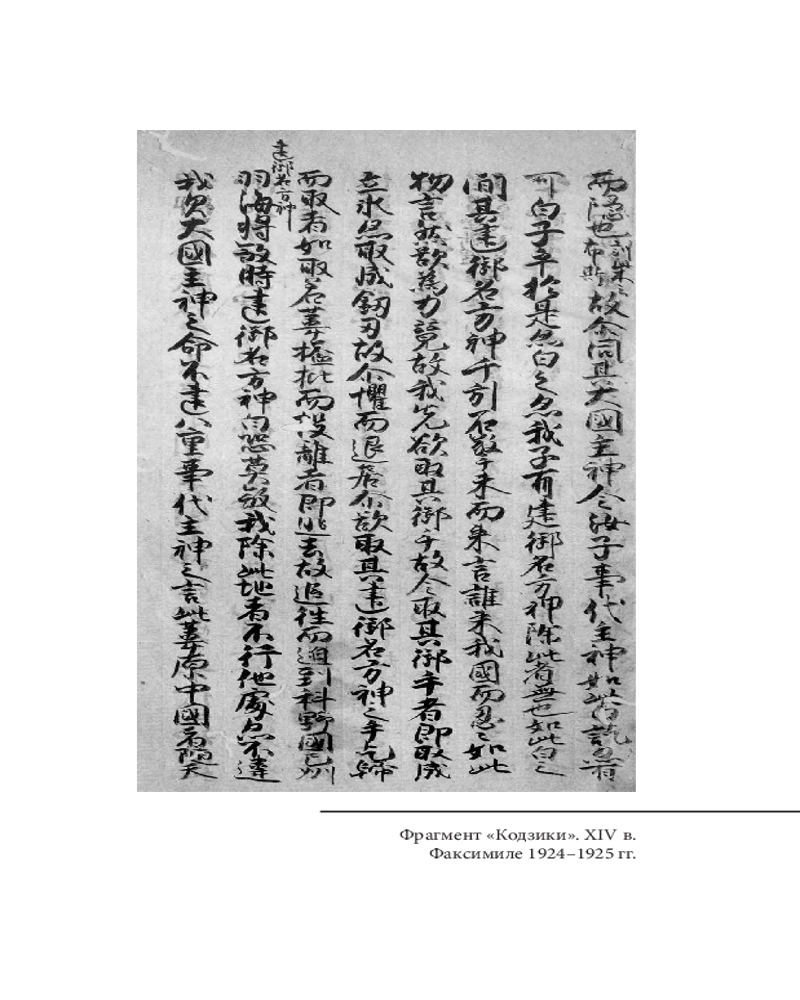 而隠也訓柴云布斯故尓問其大國主神今汝子事代主神如此白訖亦有
可白子乎於是亦白之亦我子有建御名方神除此者無也如此白之
間其建御名方神千引石擎手末而来言誰来我國而忍々如此
物言然欲為力競故我先欲取其御手故令取其御手者即取成
立氷亦取成釼刃故尓懼而退居尓欲取其建御名方神之手乞歸
而取者如取若葦搤批而投離者即逃去故追往而迫到科野國之州
建御名方神
羽海将殺時建御名方神白恐莫殺我除此地者不行他處亦不違
我父大國主神之命不違八重事代主神之言此葦原中國者随天
Фрагмент «Кодзики». XIV в.
Факсимиле 1924–1925 гг.